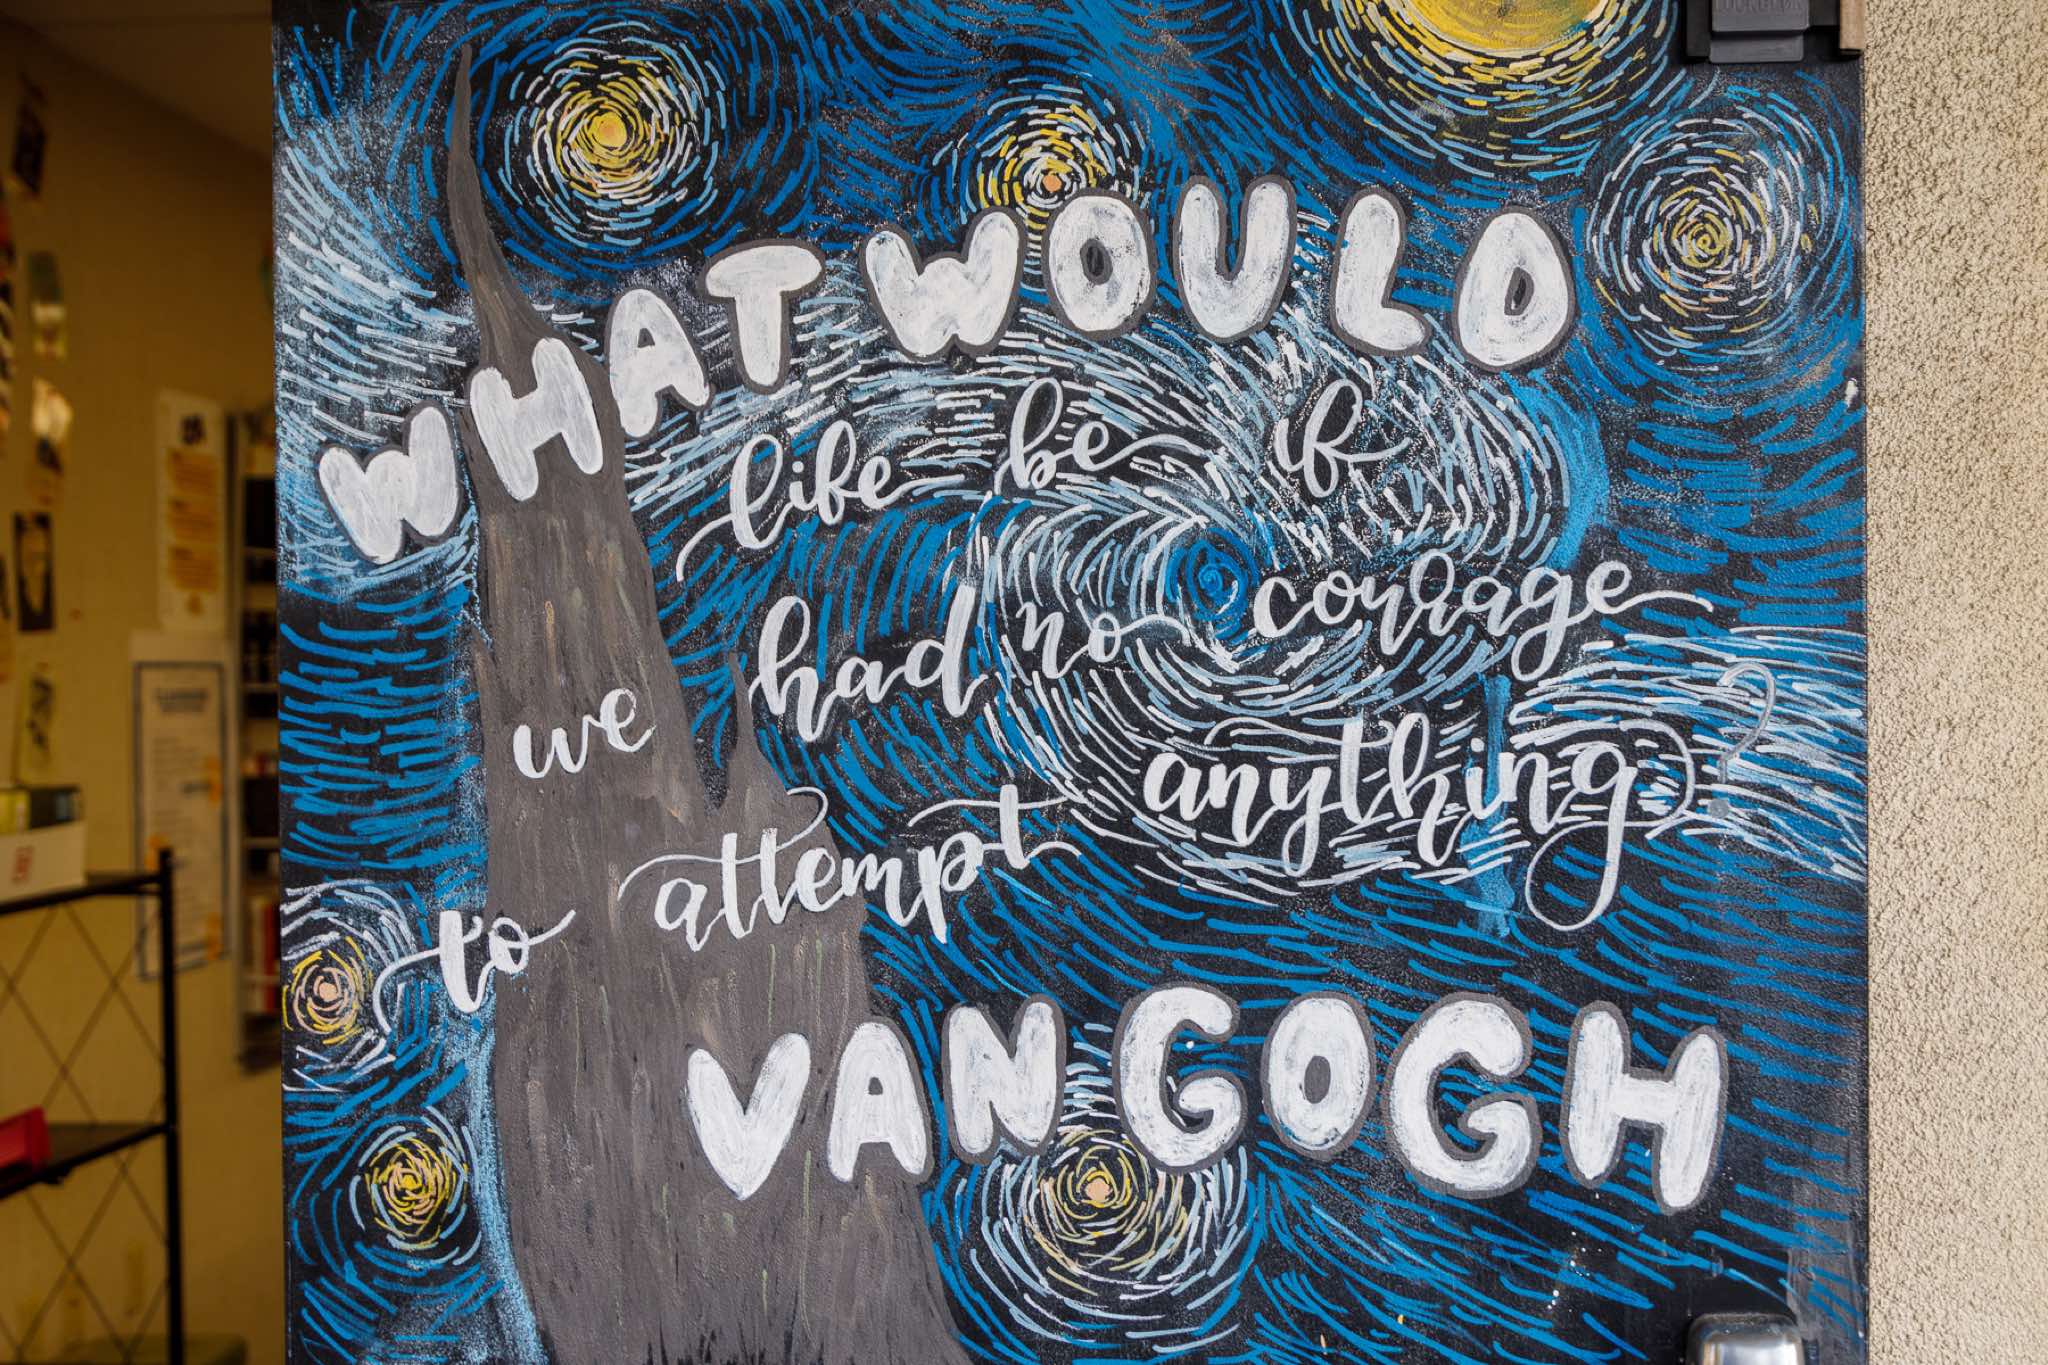 WHAT WOULD
life be if
we had no courage
to attempt anything?
VAN GOGH